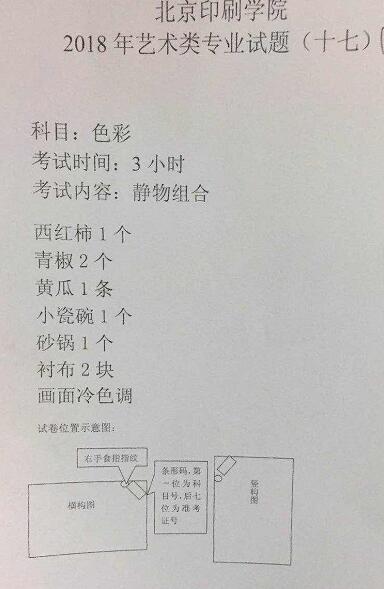 北京印刷学院
2018 年艺术类专业试题（十七）
科目：色彩
考试时间：3 小时
考试内容：静物组合
西红柿 1 个
青椒 2 个
黄瓜 1 条
小瓷碗 1 个
砂锅 1 个
衬布 2 块
画面冷色调
试卷位置示意图：
右手食指指纹
条形码，第
一位为科
目号，后七
位为准考
证号
横构图
竖构图